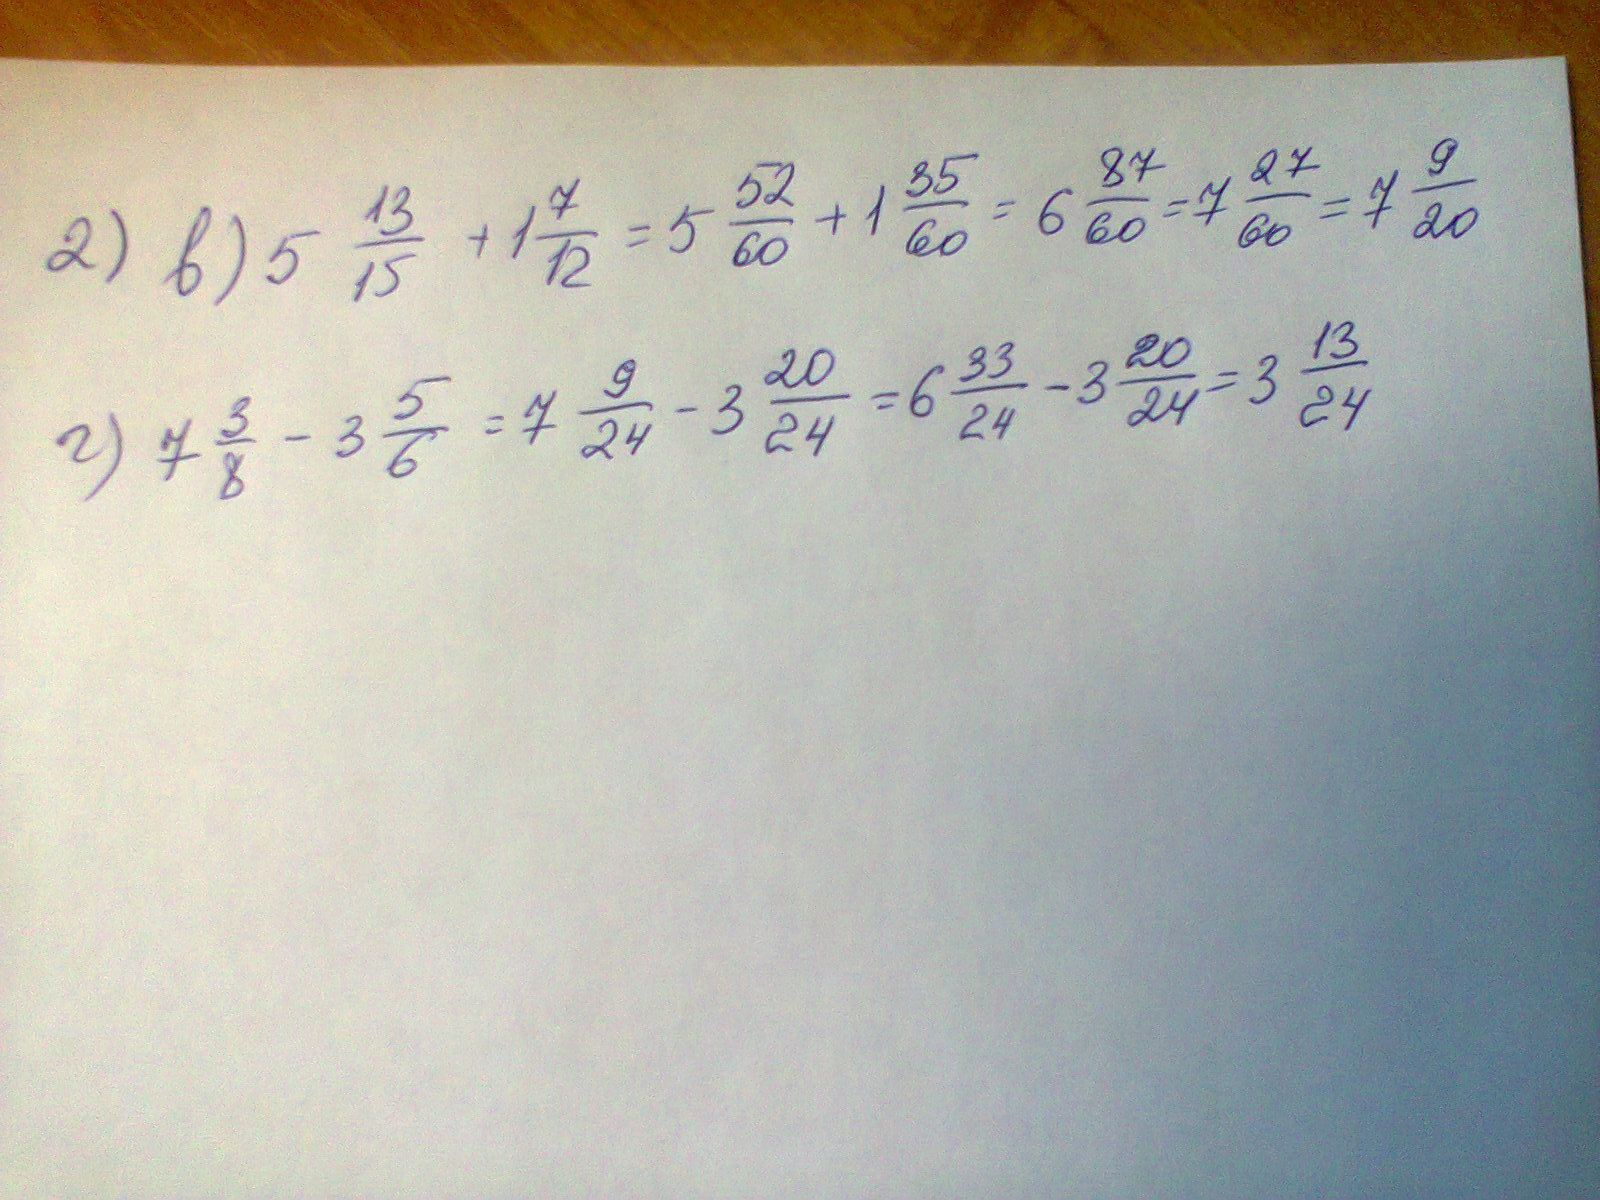 2) в) 5 13/15 + 1 7/12 = 5 52/60 + 1 35/60 = 6 87/60 = 7 27/60 = 7 9/20
г) 7 3/8 - 3 5/6 = 7 9/24 - 3 20/24 = 6 33/24 - 3 20/24 = 3 13/24